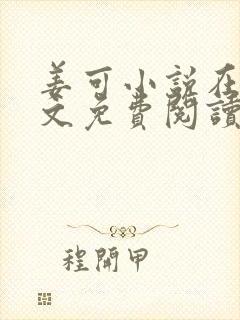 姜可小说在
文免費閱讀
程開甲